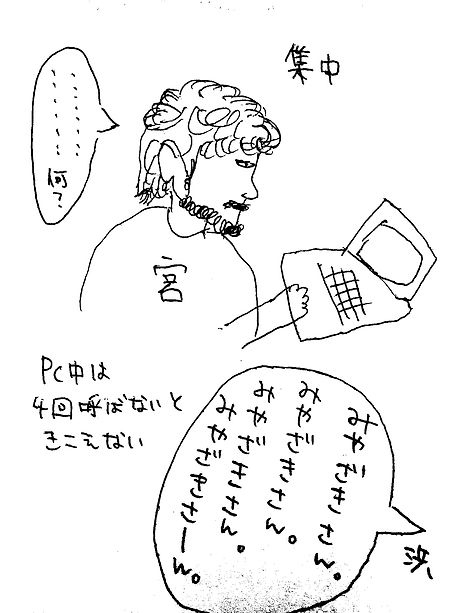 集中
…… …… 何?
宮
PC中は
4回呼ばないと
きこえない
みやざきさん。
みやざきさん。
みやざきさん。
みやざきさーん。